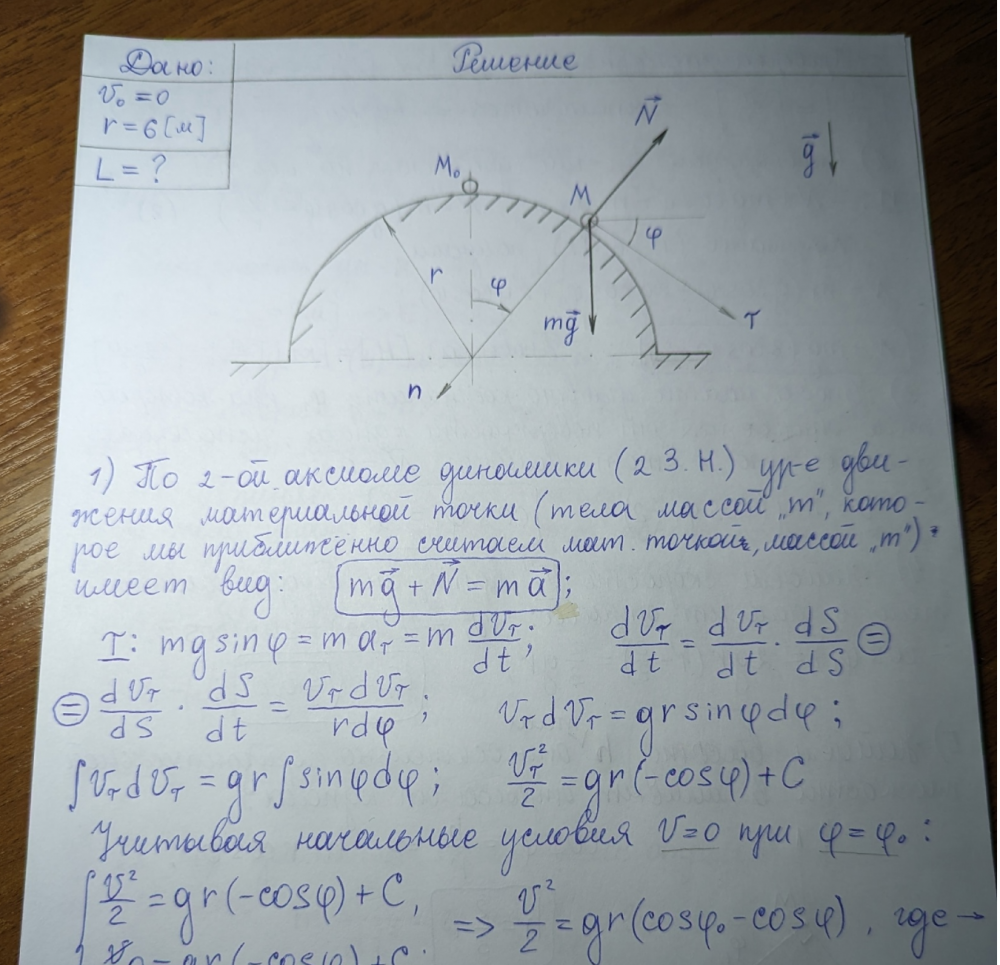 Дано:
Решение
v₀ = 0
r = 6 [м]
L = ?
N⃗
g⃗
M₀
M
φ
r
φ
mg⃗
τ
n
1) По 2-ой аксиоме динамики (2 З.Н.) ур-е дви-
жения материальной точки (тела массой „m", кото-
рое мы приближённо считаем мат. точкой, массой „m")
имеет вид: mg⃗ + N⃗ = ma⃗ ;
τ: mg sinφ = m a_τ = m dv_τ/dt ; dv_τ/dt = dv_τ/dt · dS/dS =
= dv_τ/dS · dS/dt = v_τ dv_τ / r dφ ; v_τ dv_τ = gr sinφ dφ ;
∫ v_τ dv_τ = gr ∫ sinφ dφ ; v_τ²/2 = gr (-cosφ) + C
Учитывая начальные условия v=0 при φ=φ₀ :
v²/2 = gr (-cosφ) + C, => v²/2 = gr (cosφ₀ - cosφ) , где →